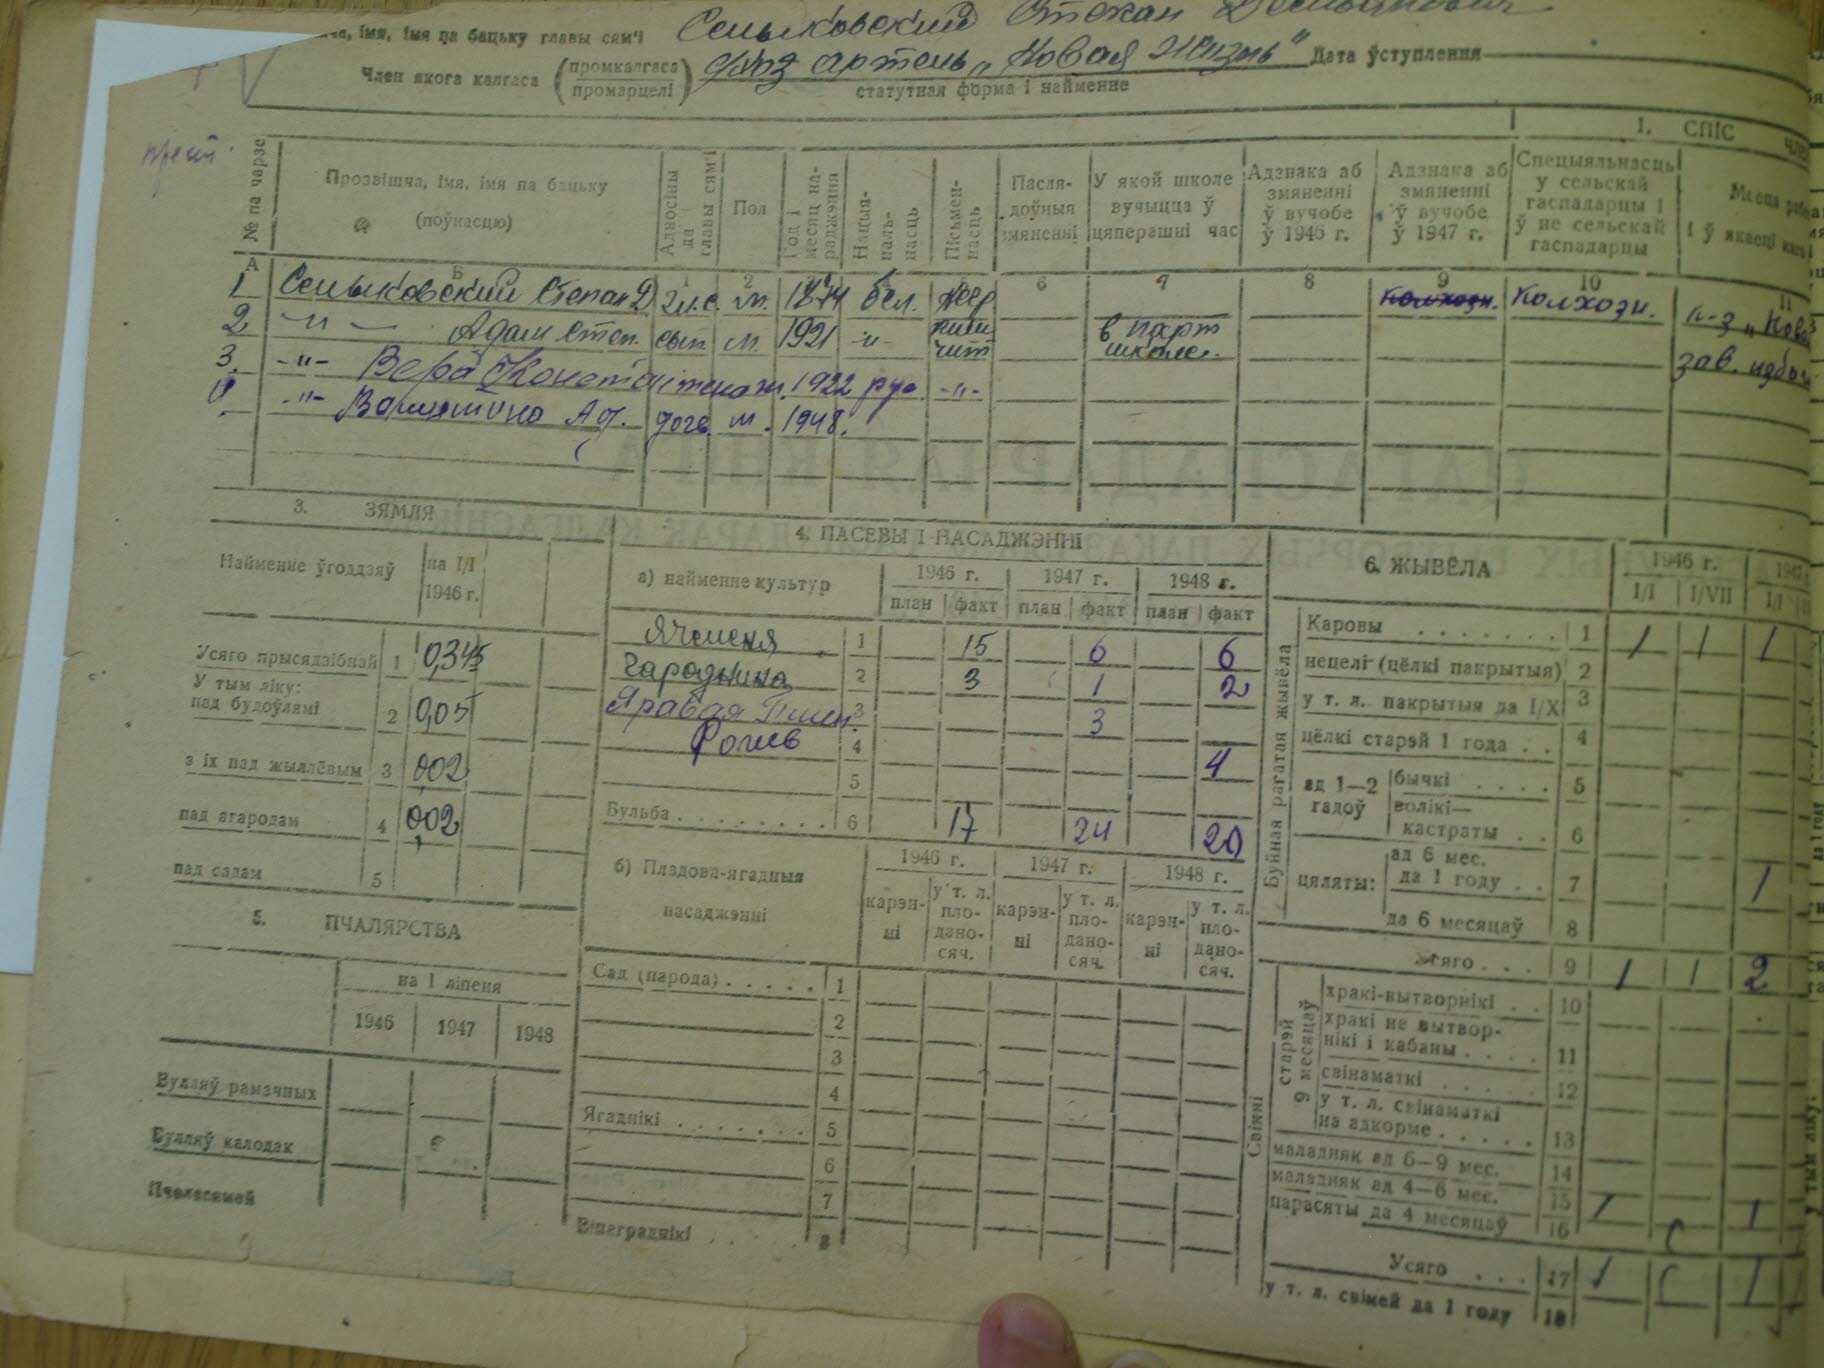 імя, імя па бацьку главы сям'і Сеньковский Степан
Член якога калгаса (промкалгаса / промарцелі) с/хоз артель „Новая Жизнь" Дата ўступлення
статутная форма і найменне
1. СПІС
№ па чарзе
Прозвішча, імя, імя па бацьку (поўнасцю)
Адносіны да главы сям'і
Пол
Год і месяц нараджэння
Нацыянальнасць
Пісьменнасць
Пасля-доўныя змяненні
У якой школе вучыцца ў цяперашні час
Адзнака аб змяненні ў вучобе ў 1946 г.
Адзнака аб змяненні ў вучобе ў 1947 г.
Спецыяльнасць у сельскай гаспадарцы і ў не сельскай гаспадарцы
Месца
і ў якасці
А Б 1 2 6 7 8 9 10 11
1 Сеньковский Степан Д гл.с. м. 1874 бел. негр колхозн. колхозн. к-з „Нова
2 -"- Адам Степ. сын м. 1921 -"- пиш чит в парт школе. зав. избач
3. -"- Вера Констант 1922 рус. -"-
4. -"- Валентина Ад. доч. м. 1948.
3. ЗЯМЛЯ
Найменне ўгоддзяў на I/I 1946 г.
Усяго прысядзібнай 1 0,345
У тым ліку:
пад будоўлямі 2 0,05
з іх пад жыллёвым 3 0,02
пад агародам 4 0,02
пад садам 5
5. ПЧАЛЯРСТВА
на I ліпеня
1946 1947 1948
Вулляў рамачных
Вулляў калодак
Пчаласямей
4. ПАСЕВЫ І НАСАДЖЭННІ
а) найменне культур 1946 г. 1947 г. 1948 г.
план факт план факт план факт
Ячменя 1 15 6 6
Гародніна 2 3 1 2
Яравая Пшен. 3 3
4 4
5
Бульба . . . . . . . . 6 17 24 20
б) Пладова-ягадныя насаджэнні
1946 г. 1947 г. 1948 г.
карэн-ні у т. л. пло-дано-сяч. карэн-ні у т. л. пло-дано-сяч. карэн-ні у т. л. пло-дано-сяч.
Сад (парода) . . . . . 1
2
3
4
Ягаднікі . . . . . . . 5
6
7
Вінаграднікі . . . . 8
6. ЖЫВЁЛА
1946 г. 1947
I/I I/VII I/I
Буйная рагатая жывёла
Каровы . . . . . . . 1 1 1 1
нецелі (цёлкі пакрытыя) 2
у т. л. пакрытыя да I/X 3
цёлкі старэй 1 года . . 4
ад 1—2 гадоў
бычкі . . . . 5
волікі—кастраты . . 6
цяляты:
ад 6 мес. да 1 году . . 7 1
да 6 месяцаў 8
Усяго . . . 9 1 1 2
Свінні
старэй 9 месяцаў
хракі-вытворнікі . . 10
хракі не вытвор-нікі і кабаны . . . . 11
свінаматкі . . . . . 12
у т. л. свінаматкі на адкорме . . . . . 13
маладняк ад 6—9 мес. 14
маладняк ад 4—6 мес. 15 1 1
парасяты да 4 месяцаў 16
Усяго . . . 17 1 1
у т. л. свіней да 1 году 18